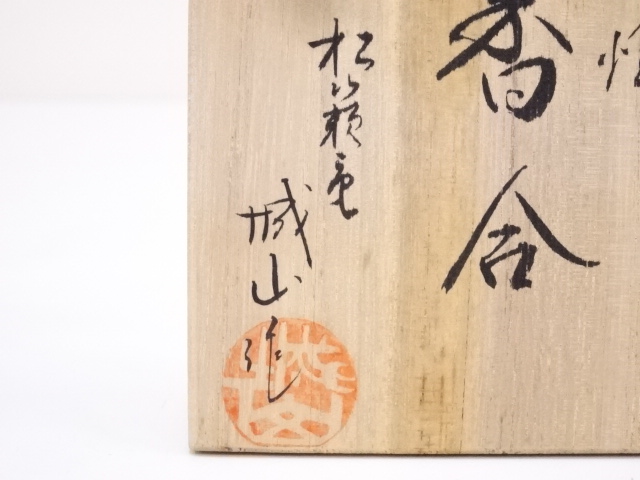 香合
松籟庵
城山作